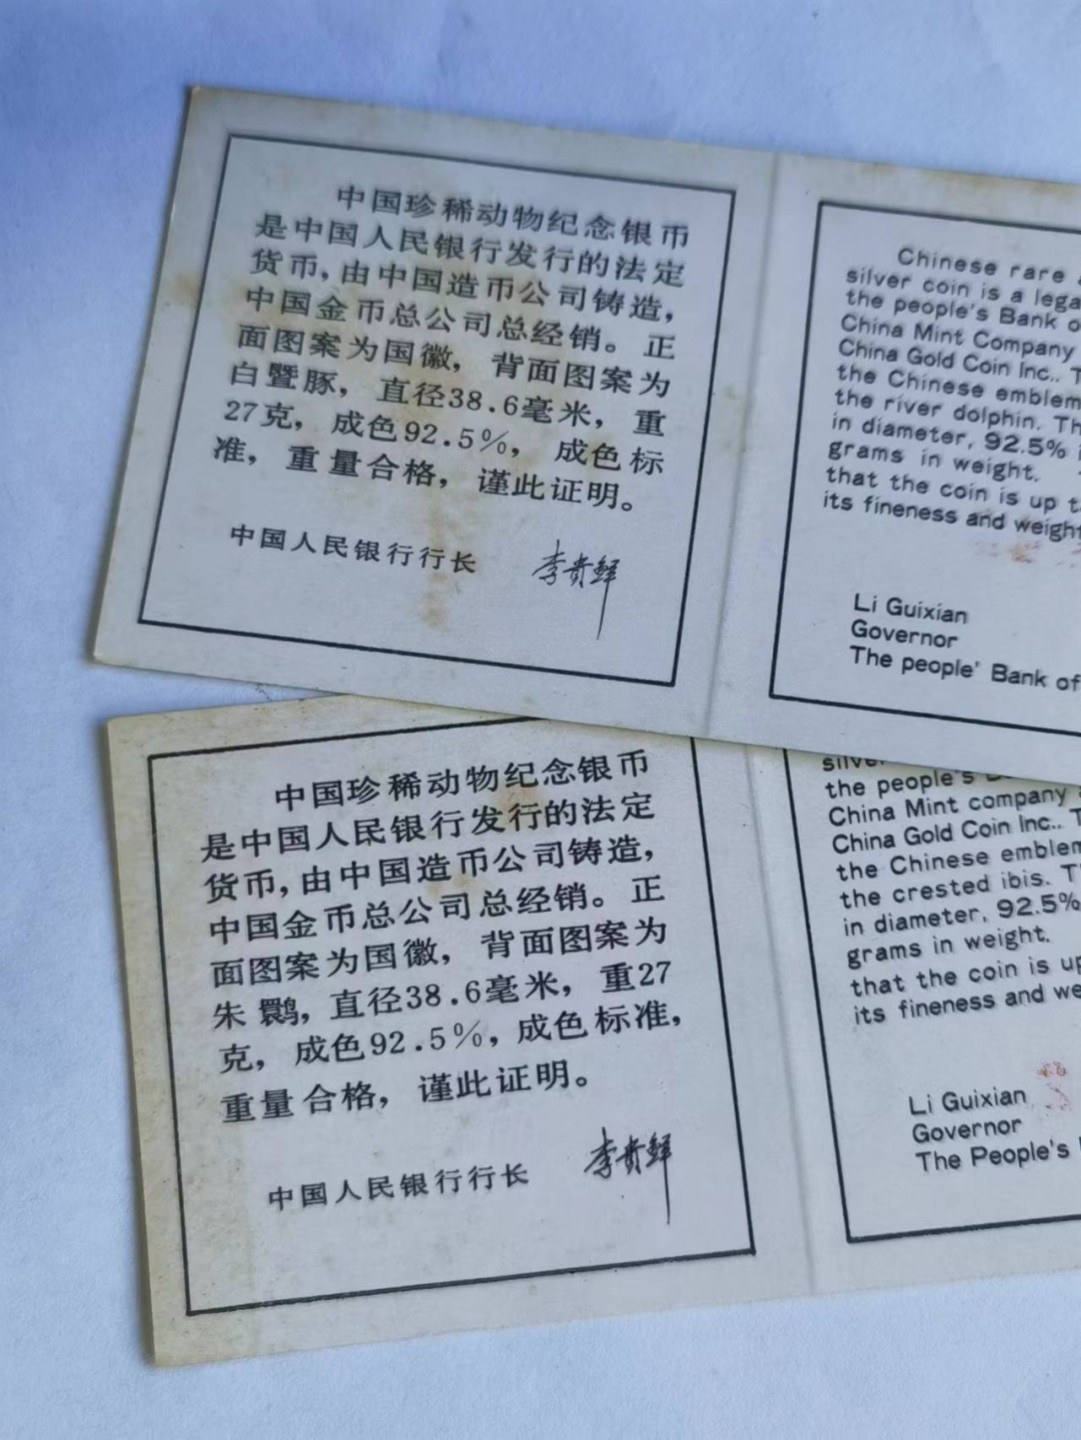 中国珍稀动物纪念银币
是中国人民银行发行的法定
货币，由中国造币公司铸造，
中国金币总公司总经销。正
面图案为国徽，背面图案为
白暨豚，直径38.6毫米，重
27克，成色92.5%，成色标
准，重量合格，谨此证明。
中国人民银行行长 李贵鲜
Chinese rare
silver coin is a lega
the people's Bank o
China Mint Company
China Gold Coin Inc.. T
the Chinese emblem
the river dolphin. Th
in diameter, 92.5%
grams in weight.
that the coin is up t
its fineness and weight
Li Guixian
Governor
The people' Bank of
中国珍稀动物纪念银币
是中国人民银行发行的法定
货币，由中国造币公司铸造，
中国金币总公司总经销。正
面图案为国徽，背面图案为
朱鹮，直径38.6毫米，重27
克，成色92.5%，成色标准，
重量合格，谨此证明。
中国人民银行行长 李贵鲜
silver
the people's
China Mint company
China Gold Coin Inc.. T
the Chinese emblem
the crested ibis. T
in diameter, 92.5%
grams in weight.
that the coin is up
its fineness and we
Li Guixian
Governor
The People's